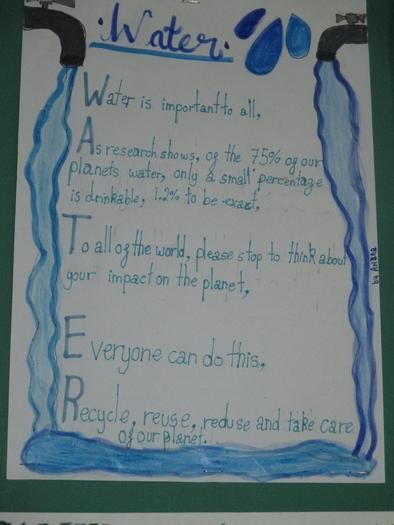 Water.
Water is important to all,
As research shows, of the 75% of our
planets water, only a small percentage
is drinkable, 1.2% to be exact,
To all of the world, please stop to think about
your impact on the planet,
Everyone can do this,
Recycle, reuse, reduse and take care
of our planet.
by Ariana